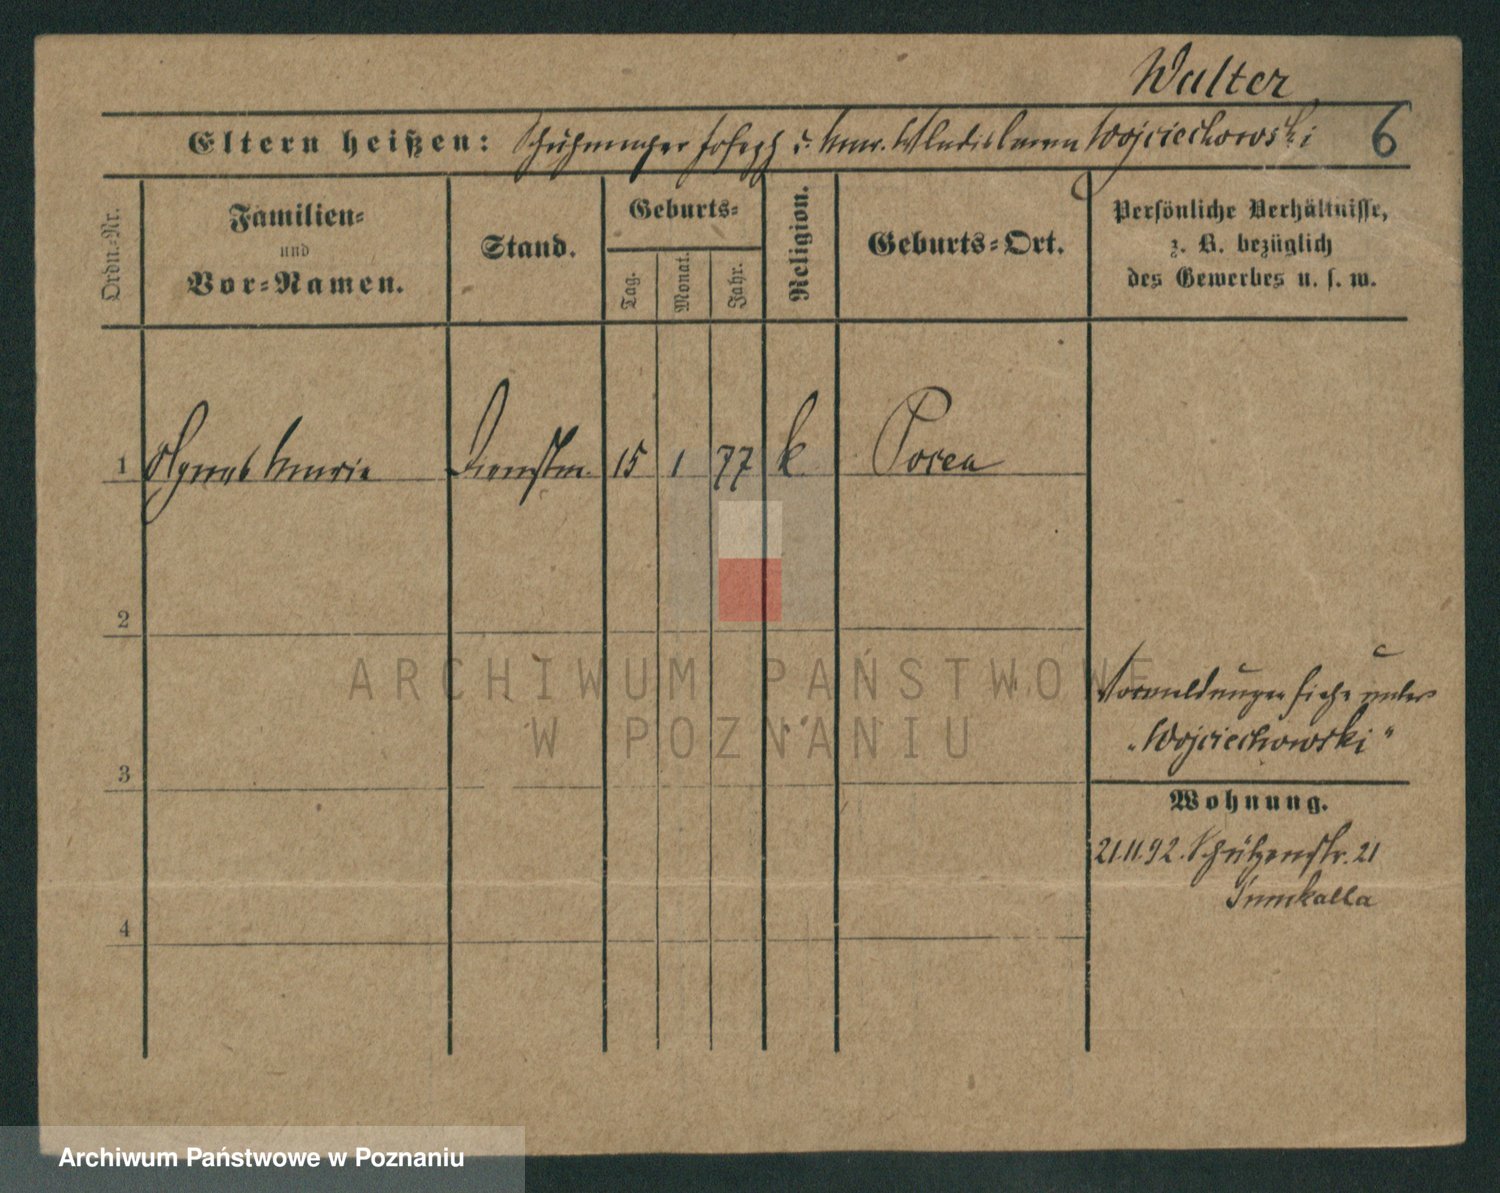 Walter
Eltern heißen: Schuhmacher Joseph u. Wojciechowski
6
Ordn.-Nr.
Familien-
und
Vor-Namen.
Stand.
Geburts-
Tag.
Monat.
Jahr.
Religion.
Geburts-Ort.
Persönliche Verhältnisse,
z. B. bezüglich
des Gewerbes u. s. w.
1 Agnes Marie Dienstm. 15 1 77 k Posen
2
3
4
Vormeldungen siehe unter
„Wojciechowski"
Wohnung.
21.11.92. Schützenstr. 21
ARCHIWUM PAŃSTWOWE
W POZNANIU
Archiwum Państwowe w Poznaniu